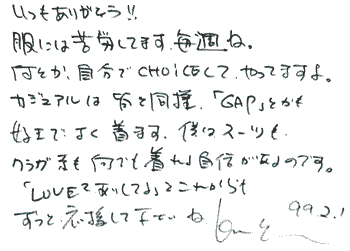 いつもありがとう!!
服には苦労してます、毎週ね。
何とか、自分でCHOICEして、やってますよ。
カジュアルは皆と同様、「GAP」とかも
好きで、よく着ます。僕はスーツも
クラブ系も何でも着れる自信があるのです。
「LOVEであいしてるよ」とこれからも
ずっと応援して下さいね
99.2.1